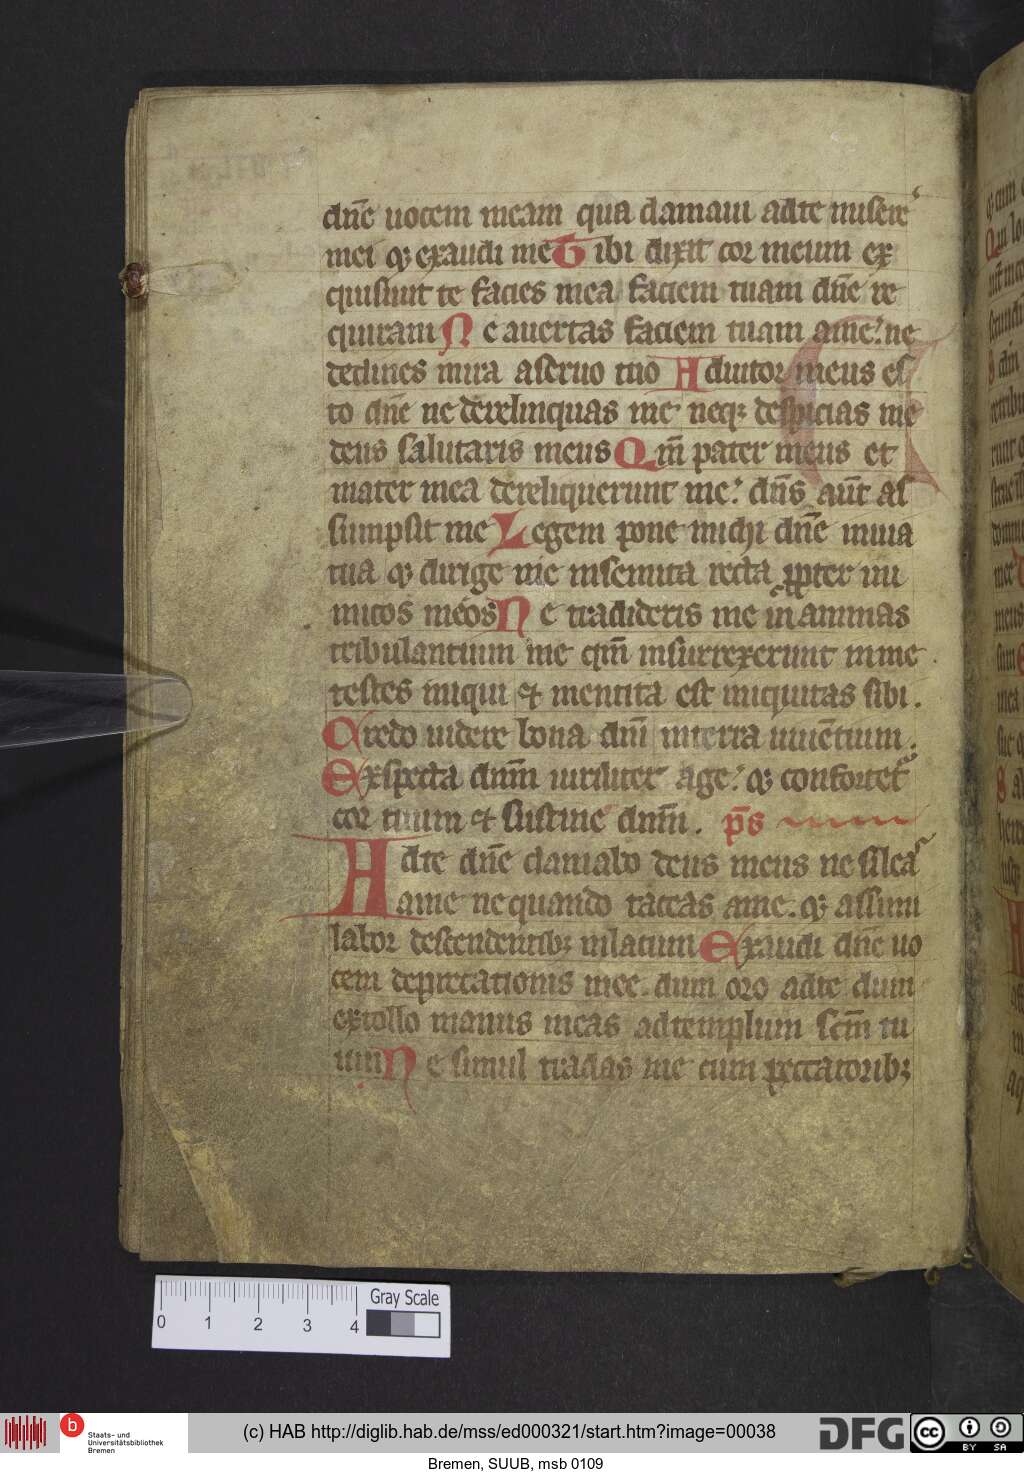 dn̄e uocem meam qua clamaui adte misere
mei ⁊ exaudi me Tibi dixit cor meum ex
quisiuit te facies mea faciem tuam dn̄e re
quiram Ne auertas faciem tuam ame. ne
declines inira aseruo tuo Adiutor meus es
to dn̄e ne derelinquas me neqꝫ despicias me
deus salutaris meus Qm̄ pater meus et
mater mea dereliquerunt me. dn̄s aūt as
sumpsit me Legem pone michi dn̄e inuia
tua ⁊ dirige me insemita recta ꝓpter ini
micos meos Ne tradideris me in animas
tribulantium me qm̄ insurrexerunt inme
testes iniqui ⁊ mentita est iniquitas sibi.
Credo uidere bona dn̄i interra uiuētium.
Exspecta dnm̄ uiriliter age. ⁊ confortet᷑
cor tuum ⁊ sustine dnm̄. p̄s
Adte dn̄e clamabo deus meus ne sileas
ame nequando taceas ame. ⁊ assimi
labor descendentibꝫ inlacum Exaudi dn̄e uo
cem deprecationis mee. dum oro adte dum
extollo manus meas adtemplum scm̄ tu
um Ne simul tradas me cum peccatoribꝫ
Gray Scale
0 1 2 3 4
b Staats- und
Universitätsbibliothek
Bremen
(c) HAB http://diglib.hab.de/mss/ed000321/start.htm?image=00038
DFG
cc BY SA
Bremen, SUUB, msb 0109